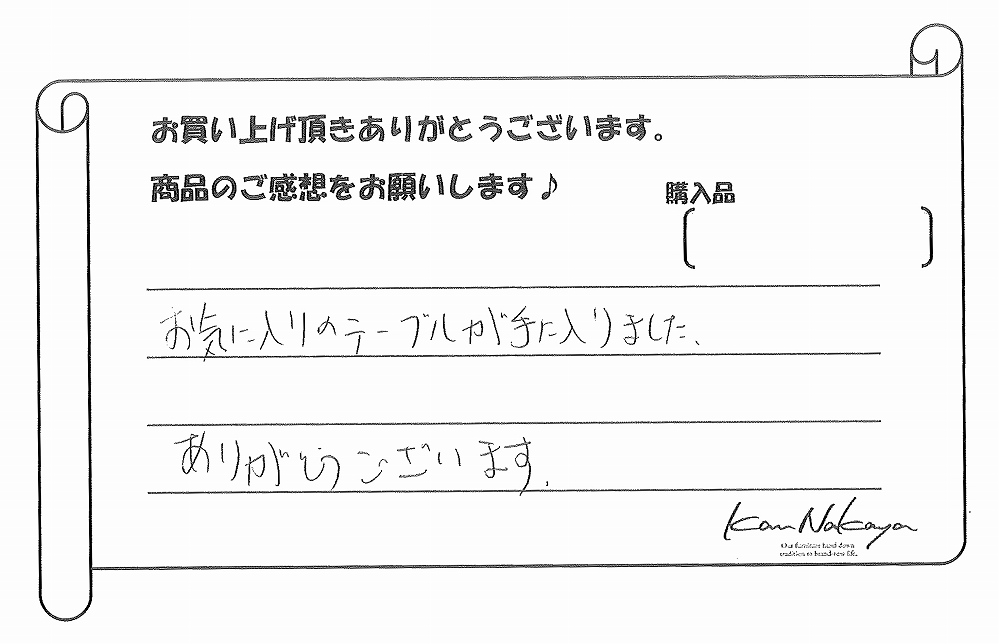 お買い上げ頂きありがとうございます。
商品のご感想をお願いします♪
購入品
お気に入りのテーブルが手に入りました、
ありがとうございます.
Kan Nakaya
Our furniture hand down
tradition to brand-new life.